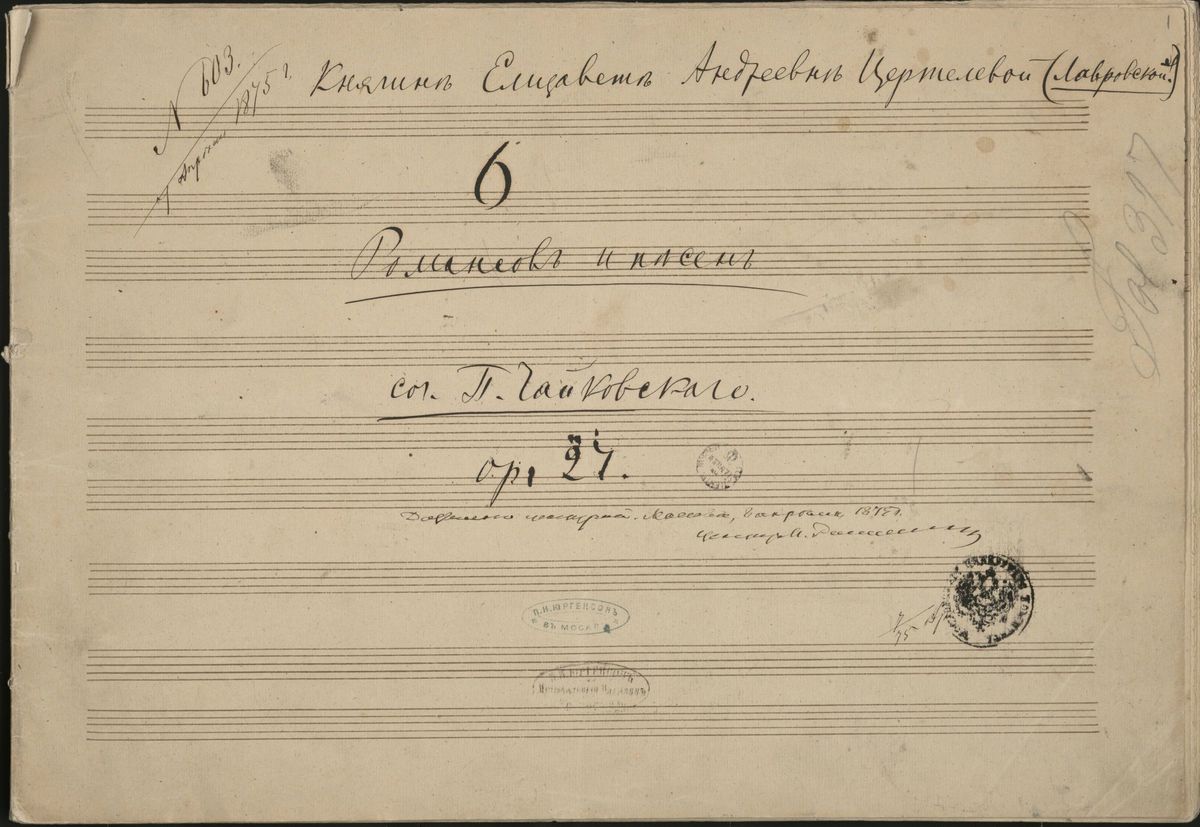 N 603.
7 Апрѣля 1875 г.
Княгинѣ Елизаветѣ Андреевнѣ Цертелевой (Лавровской)
6
Романсовъ и пѣсенъ
соч. П. Чайковскаго.
op. 27.
Дозволено цензурой. Москва, 7 апрѣля 1875 г.
П. И. ЮРГЕНСОНЪ
ВЪ МОСКВѢ
П. И. ЮРГЕНСОНЪ
317